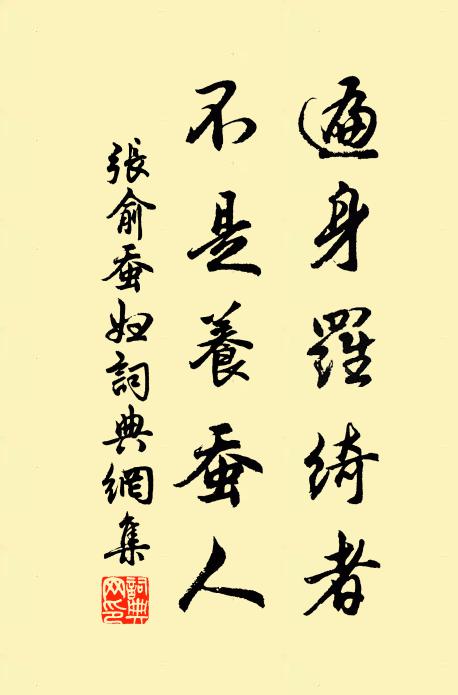 遍身羅綺者
不是養蚕人
張俞蚕妇詞典網集
詞典網印